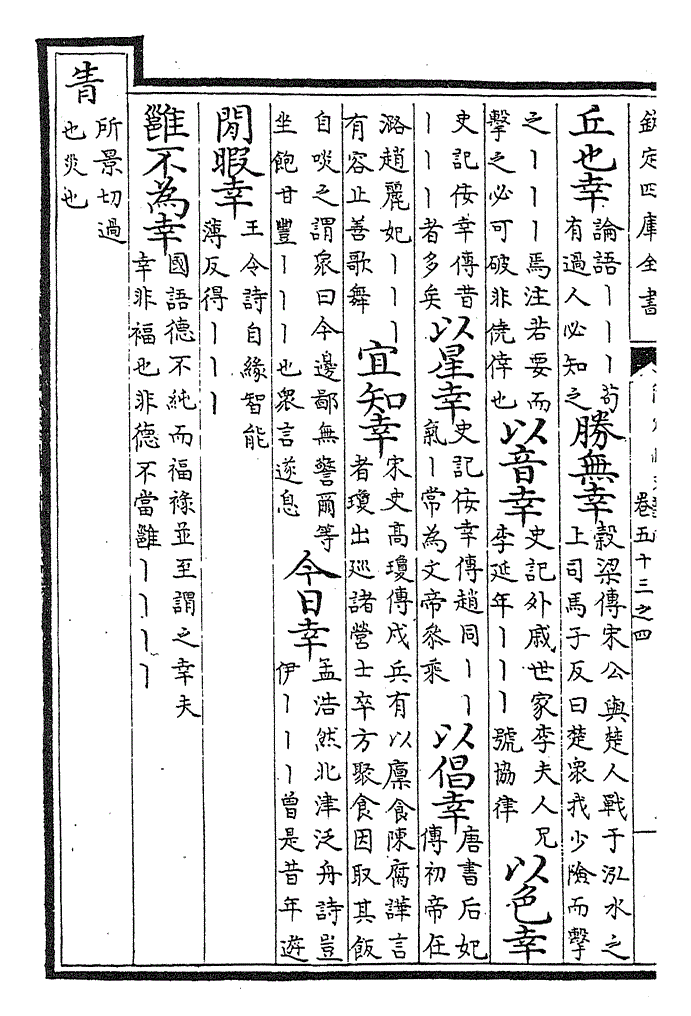 欽定四庫全書
卷五十三之四
丘也幸
論語丨丨丨苟
有過人必知之
勝無幸
穀梁傳宋公與楚人戰于泓水之
上司馬子反曰楚衆我少險而擊
之丨丨丨焉注若要而
擊之必可破非僥倖也
以音幸
史記外戚世家李夫人兄
李延年丨丨丨號協律
以色幸
史記佞幸傳昔
丨丨丨者多矣
以星幸
史記佞幸傳趙同丨丨
氣丨常為文帝參乘
以倡幸
唐書后妃
傳初帝在
潞趙麗妃丨丨丨
有容止善歌舞
宜知幸
宋史高瓊傳戍兵有以廪食陳腐譁言
者瓊出廵諸營士卒方聚食因取其飯
自啖之謂衆曰今邊鄙無警爾等
坐飽甘豐丨丨丨也衆言遂息
今日幸
孟浩然北津泛舟詩豈
伊丨丨丨曾是昔年遊
閒暇幸
王令詩自緣智能
薄反得丨丨丨
雖不為幸
國語德不純而福祿並至謂之幸夫
幸非福也非德不當雖丨丨丨丨
眚
所景切過
也災也